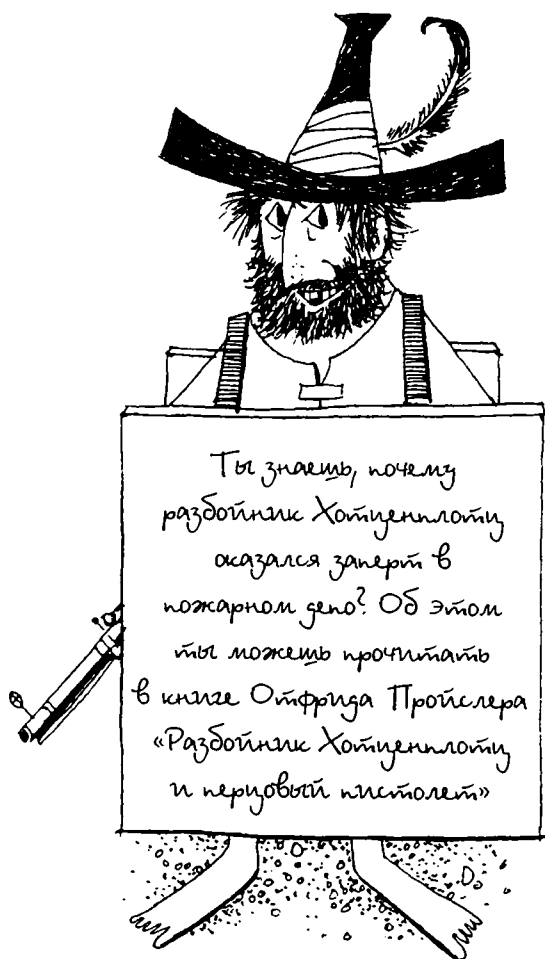 Ты знаешь, почему
разбойник Хотценплотц
оказался заперт в
пожарном депо? Об этом
ты можешь прочитать
в книге Отфрида Пройслера
«Разбойник Хотценплотц
и перцовый пистолет»